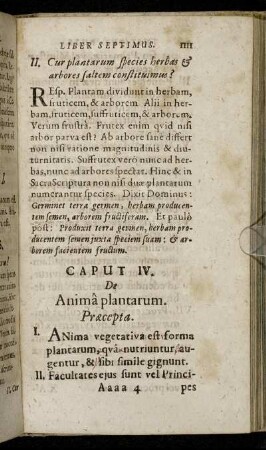 LIBER SEPTIMUS. 1111
II. Cur plantarum species herbas &
arbores saltem constituimus?
REsp. Plantam dividunt in herbam,
fruticem, & arborem. Alii in her-
bam, fruticem, suffruticem, & arborem.
Verum frustrà. Frutex enim quid nisi
arbor parva est? Ab arbore sanè differt
non nisi ratione magnitudinis & diu-
turnitatis. Suffrutex verò nunc ad her-
bas, nunc ad arbores spectat. Hinc & in
Sacra Scriptura non nisi duæ plantarum
numerantur species. Dixit Dominus:
Germinet terra germen, herbam producen-
tem semen, arborem fructiferam. Et paulò
post: Produxit terra germen, herbam pro-
ducentem semen juxta speciem suam: & ar-
borem facientem fructum.
CAPUT IV.
De
Animâ plantarum.
Præcepta.
I. ANima vegetativa est forma
plantarum, quâ nutriuntur, au-
gentur, & sibi simile gignunt.
II. Facultates ejus sunt vel Princi-
Aaaa 4 pes